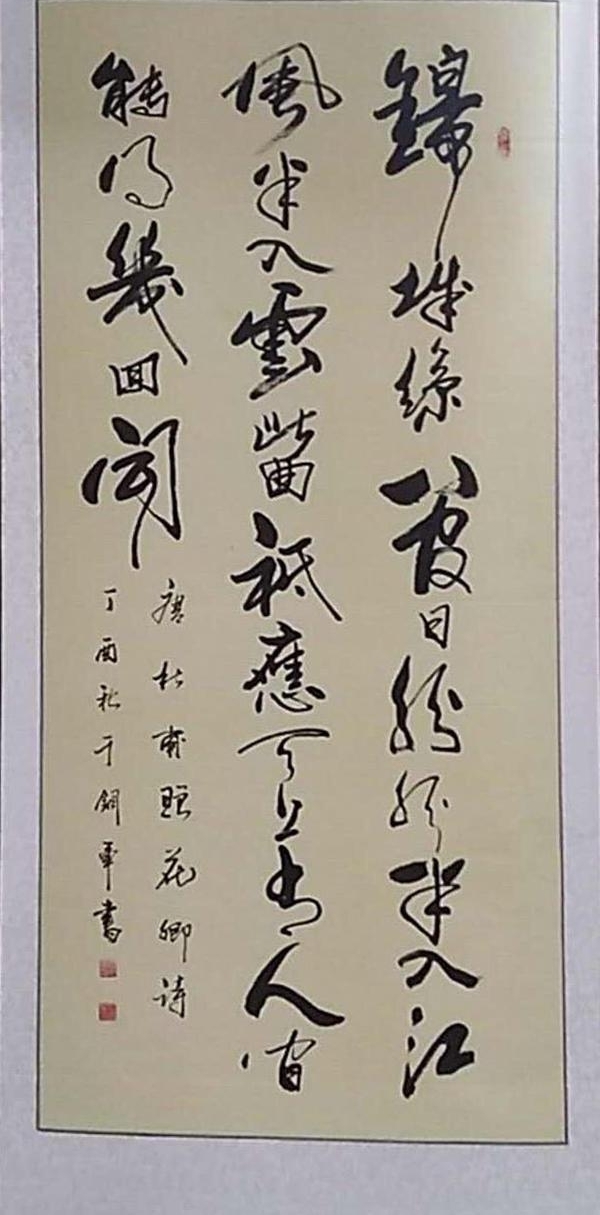 錦城絲管日紛紛半入江
風半入雲此曲祇應天上有人間
能得幾回聞
唐杜甫贈花卿詩
丁酉秋于軍書